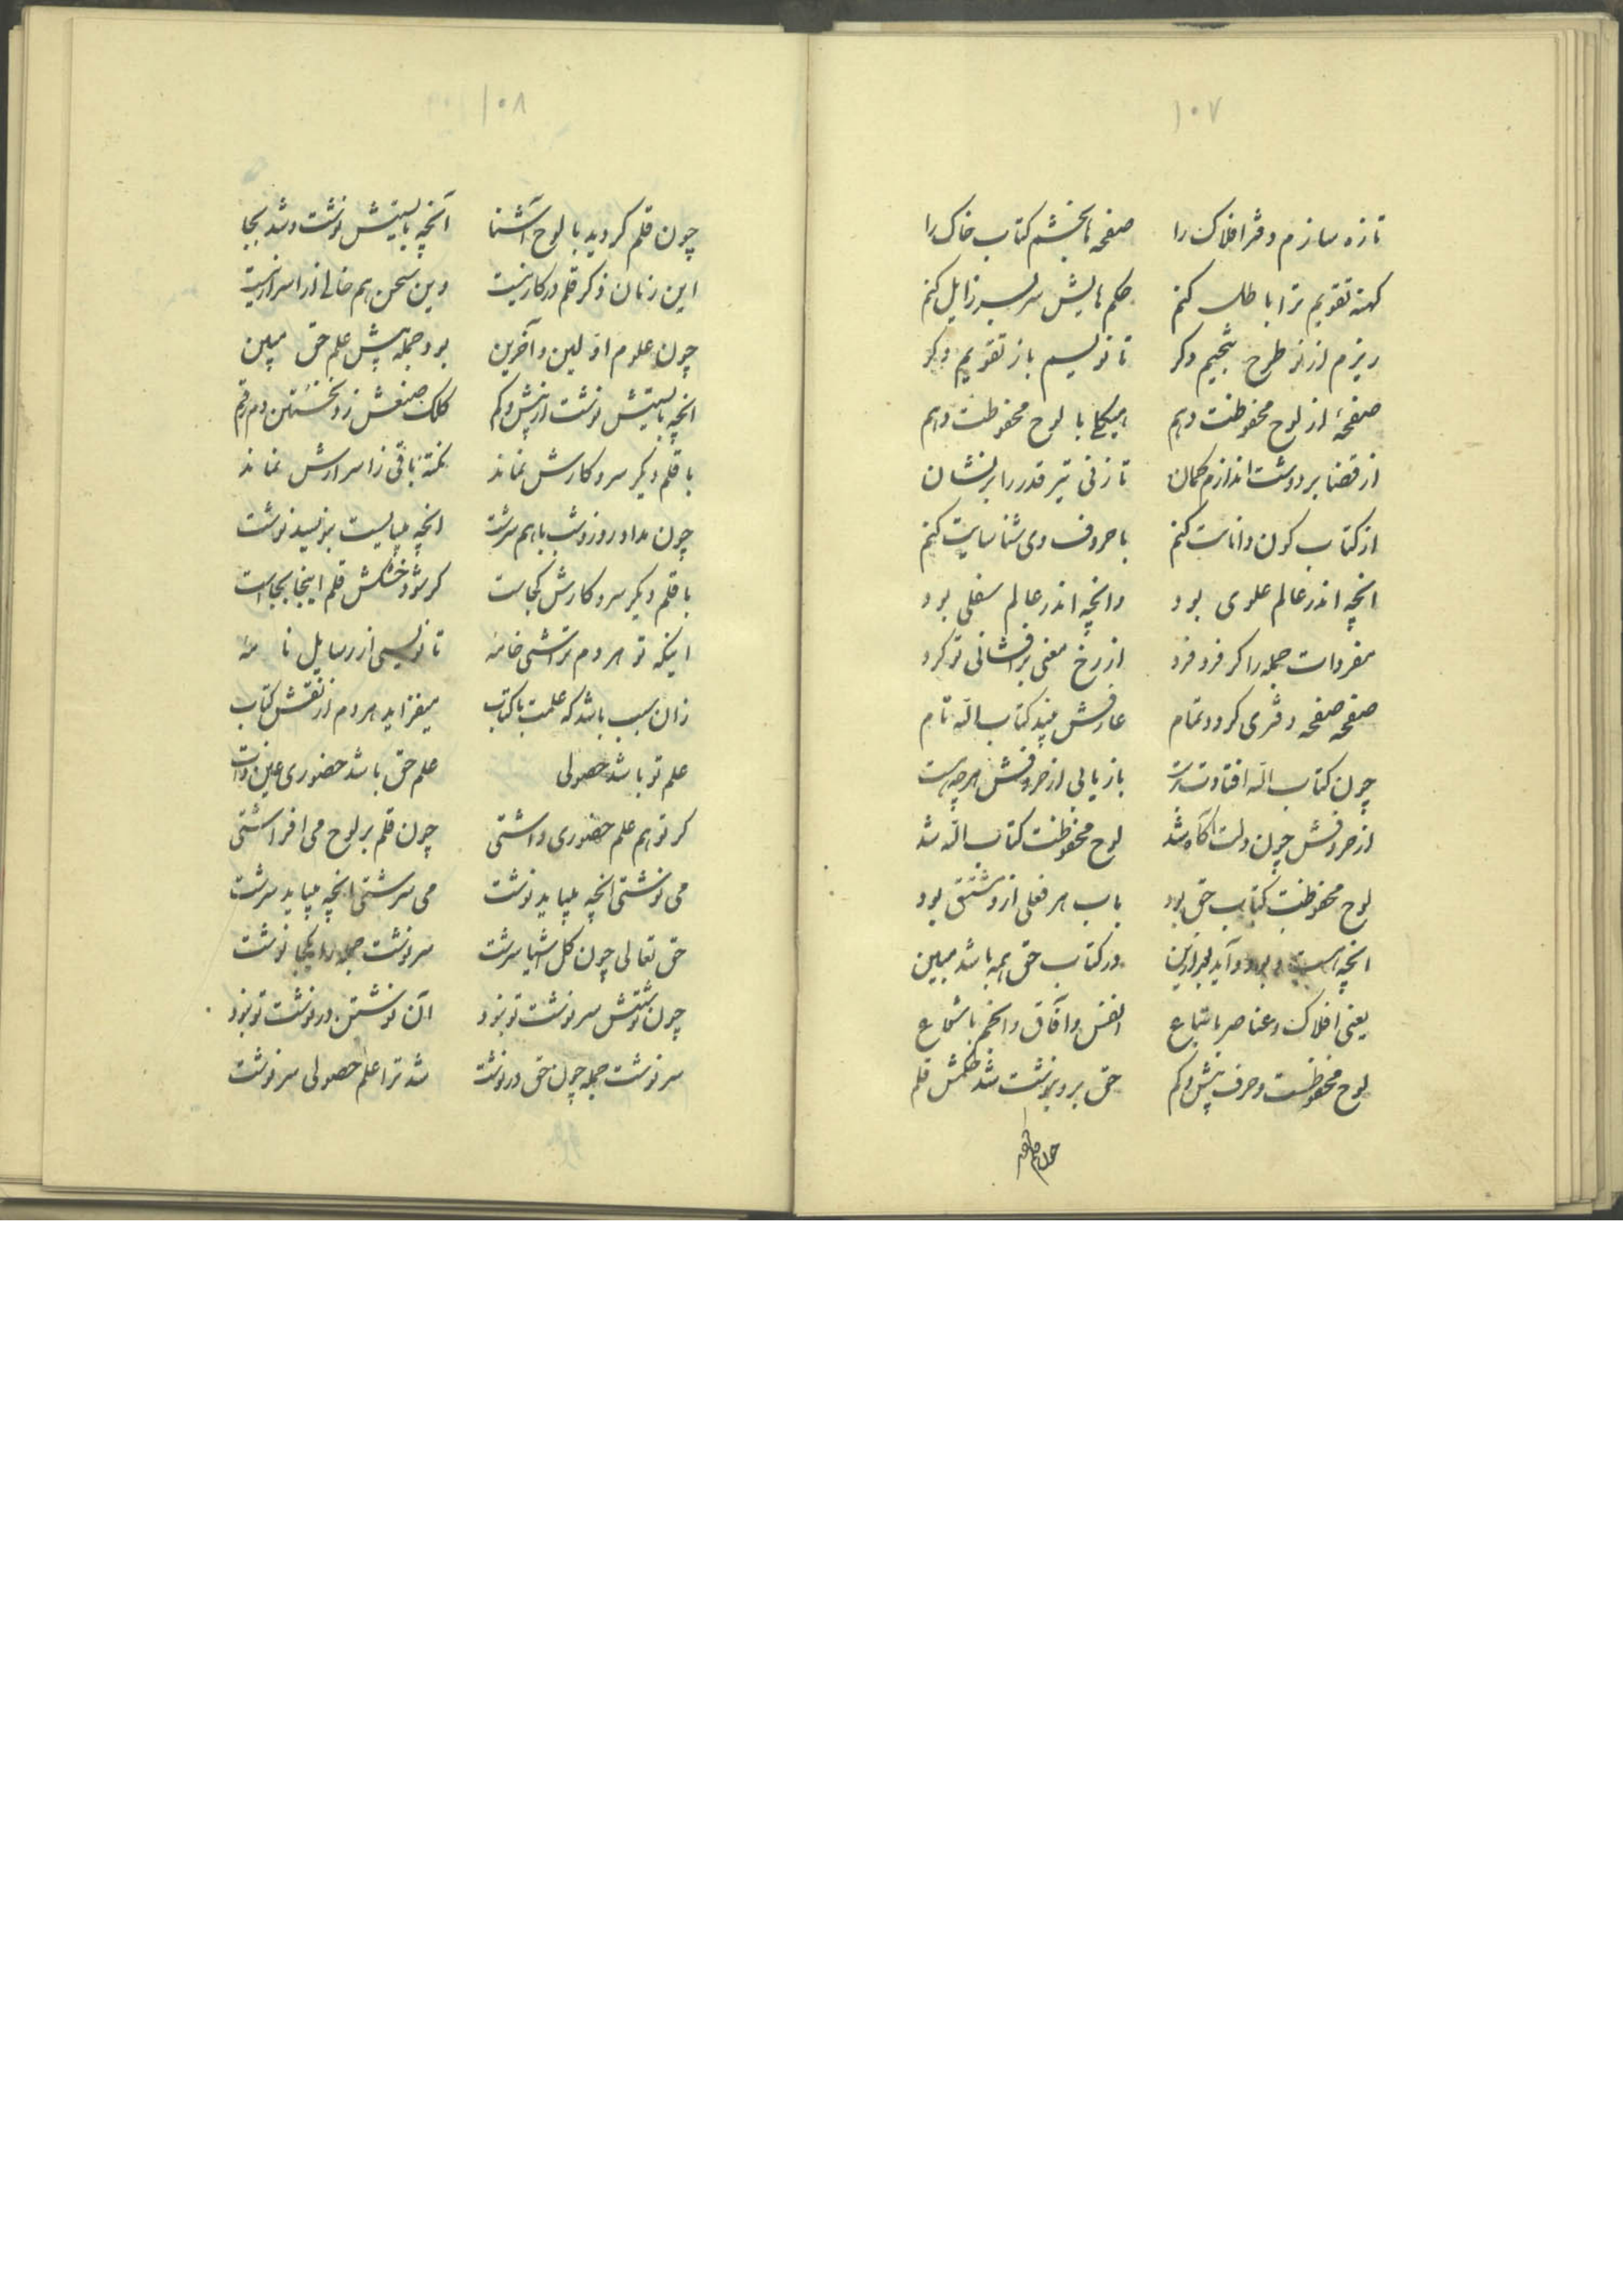 ۱۰۷
تازه سازم دفتر افلاک را صفحه‌ها بخشم کتاب خاک را
کهنه تقویم ترا باطل کنم حکم هایش سربسر زایل کنم
ریزم از نو طرح تنجیم دکر تا نویسم باز تقویم دکر
صفحهٔ از لوح محفوظت دهم هیکلی با لوح محفوظت دهم
از قضا بر دوشت اندازم کمان تا زنی تیر قدر را بر نشان
از کتاب کون دانات کنم با حروف وی شناسایت کنم
انچه اندر عالم علوی بود وانچه اندر عالم سفلی بود
مفردات جمله را کر فرد فرد از رخ معنی برافشانی تو کرد
صفحه صفحه دفتری کردد تمام عارفش بیند کتاب الله نام
چون کتاب الله افتادت بدست بازیابی از حروفش هرچه هست
از حروفش چون دلت آکاه شد لوح محفوظت کتاب الله شد
لوح محفوظت کتاب حق بود باب هر فعلی ازو مشتق بود
انچه هست و بود و آید بعد ازین در کتاب حق همه باشد مبین
یعنی افلاک و عناصر باتباع انفس و آفاق و انجم باشعاع
لوح محفوظست و حرف بیش و کم حق برو بنوشت شد حکمش قلم
چون قلم
۱۰۸
چون قلم کردید با لوح آشنا آنچه بایستیش نوشت و شد بجا
این زمان ذکر قلم در کار نیست وین سخن هم خالی از اسرار نیست
چون علوم اولین و آخرین بود جمله پیش علم حق مبین
انچه بایستیش نوشت از بیش و کم کلک صنعش زد نخستین دم رقم
با قلم دیکر سر و کارش نماند نکته باقی ز اسرارش نماند
چون مداد روز و شب با هم سرشت انچه میبایست بنویسد نوشت
با قلم دیکر سر و کارش کجاست کر شود خشکش قلم اینجا بجاست
اینکه تو هر دم تراشی خامهٔ تا نویسی از رسایل نامهٔ
زان سبب باشد که علمت با کتاب میفزاید هر دم از نقش کتاب
علم تو باشد حصولی علم حق باشد حضوری عین ذات
کر تو هم علم حضوری داشتی چون قلم بر لوح می افراشتی
می نوشتی انچه میباید نوشت می سرشتی انچه میباید سرشت
حق تعالی چون کل اشیا سرشت سرنوشت جمله را یکجا نوشت
چون نوشتش سرنوشت تو نبود آن نوشتن در نوشت تو نبود
سرنوشت جمله چون حق در نوشت شد ترا علم حصولی سرنوشت